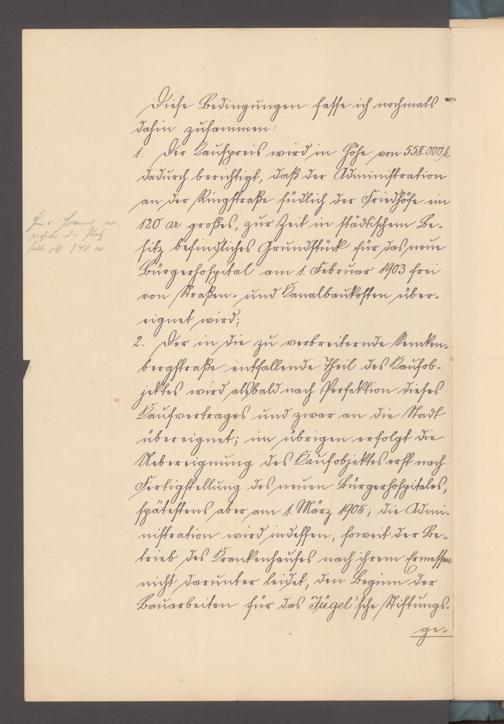 Diese Bedingungen fasse ich nochmals
dahin zusammen:
1. Der Kaufpreis wird in Höhe von 558.000 M
dadurch berichtigt, daß der Administration
an der Ringstraße südlich der Friedhöfe ein
120 ar großes, zur Zeit in städtischem Be-
sitz befindliches Grundstück für das neue
Bürgerhospital am 1. Februar 1903 frei
von Straßen- und Kanalbaukosten über-
eignet wird;
2. Der in die zu verbreiternde Senken-
bergstraße entfallende Theil des Kaufob-
jektes wird alsbald nach Perfektion dieses
Kaufvertrages und zwar an die Stadt
übereignet; im übrigen erfolgt die
Uebereignung des Kaufobjektes erst nach
Fertigstellung des neuen Bürgerhospitales,
spätestens aber am 1. März 1906; die Admi-
nistration wird indessen, soweit der Be-
trieb des Krankenhauses nach ihrem Ermessen
nicht darunter leidet, den Beginn der
Bauarbeiten für das Jügel'sche Stiftungs-
ge-
140 ar